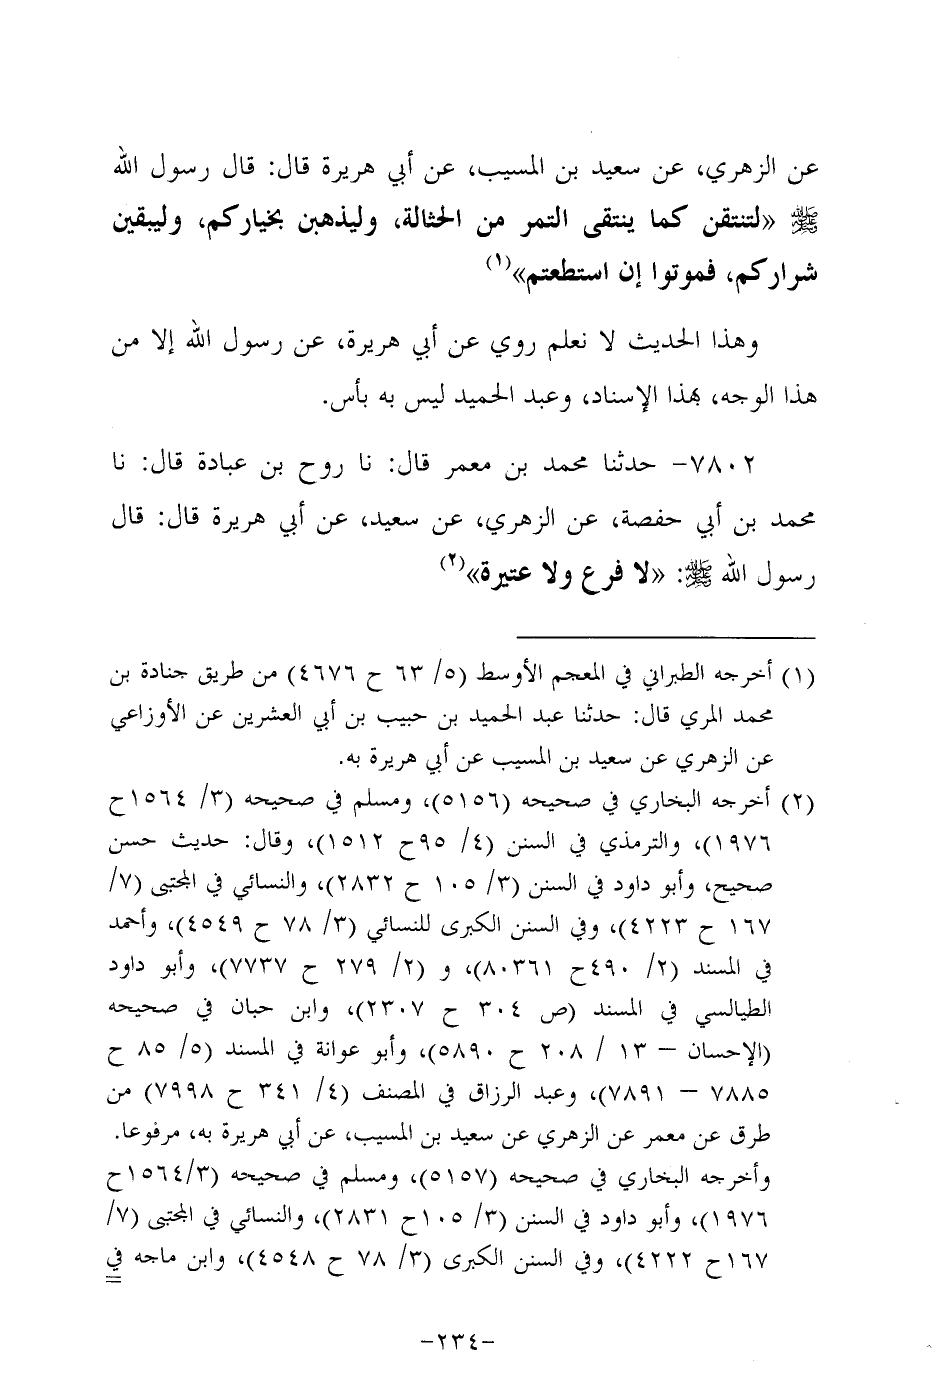 عن الزهري، عن سعيد بن المسيب، عن أبي هريرة قال: قال رسول الله
ﷺ «لتنتقن كما ينتقى التمر من الحثالة، وليذهبن بخياركم، وليبقين
شراركم، فموتوا إن استطعتم»(١)
وهذا الحديث لا نعلم روي عن أبي هريرة، عن رسول الله إلا من
هذا الوجه، بهذا الإسناد، وعبد الحميد ليس به بأس.
٧٨٠٢- حدثنا محمد بن معمر قال: نا روح بن عبادة قال: نا
محمد بن أبي حفصة، عن الزهري، عن سعيد، عن أبي هريرة قال: قال
رسول الله ﷺ: «لا فرع ولا عتيرة»(٢)
(١) أخرجه الطبراني في المعجم الأوسط (٥/ ٦٣ ح ٤٦٧٦) من طريق جنادة بن
محمد المري قال: حدثنا عبد الحميد بن حبيب بن أبي العشرين عن الأوزاعي
عن الزهري عن سعيد بن المسيب عن أبي هريرة به.
(٢) أخرجه البخاري في صحيحه (٥١٥٦)، ومسلم في صحيحه (٣/ ١٥٦٤ح
١٩٧٦)، والترمذي في السنن (٤/ ٩٥ح ١٥١٢)، وقال: حديث حسن
صحيح، وأبو داود في السنن (٣/ ١٠٥ ح ٢٨٣٢)، والنسائي في المجتبى (٧/
١٦٧ ح ٤٢٢٣)، وفي السنن الكبرى للنسائي (٣/ ٧٨ ح ٤٥٤٩)، وأحمد
في المسند (٢/ ٤٩٠ح ٨٠٣٦١)، و (٢/ ٢٧٩ ح ٧٧٣٧)، وأبو داود
الطيالسي في المسند (ص ٣٠٤ ح ٢٣٠٧)، وابن حبان في صحيحه
(الإحسان – ١٣ / ٢٠٨ ح ٥٨٩٠)، وأبو عوانة في المسند (٥/ ٨٥ ح
٧٨٨٥ – ٧٨٩١)، وعبد الرزاق في المصنف (٤/ ٣٤١ ح ٧٩٩٨) من
طرق عن معمر عن الزهري عن سعيد بن المسيب، عن أبي هريرة به، مرفوعا.
وأخرجه البخاري في صحيحه (٥١٥٧)، ومسلم في صحيحه (٣/١٥٦٤ح
١٩٧٦)، وأبو داود في السنن (٣/ ١٠٥ح ٢٨٣١)، والنسائي في المجتبى (٧/
١٦٧ح ٤٢٢٢)، وفي السنن الكبرى (٣/ ٧٨ ح ٤٥٤٨)، وابن ماجه في
-٢٣٤-